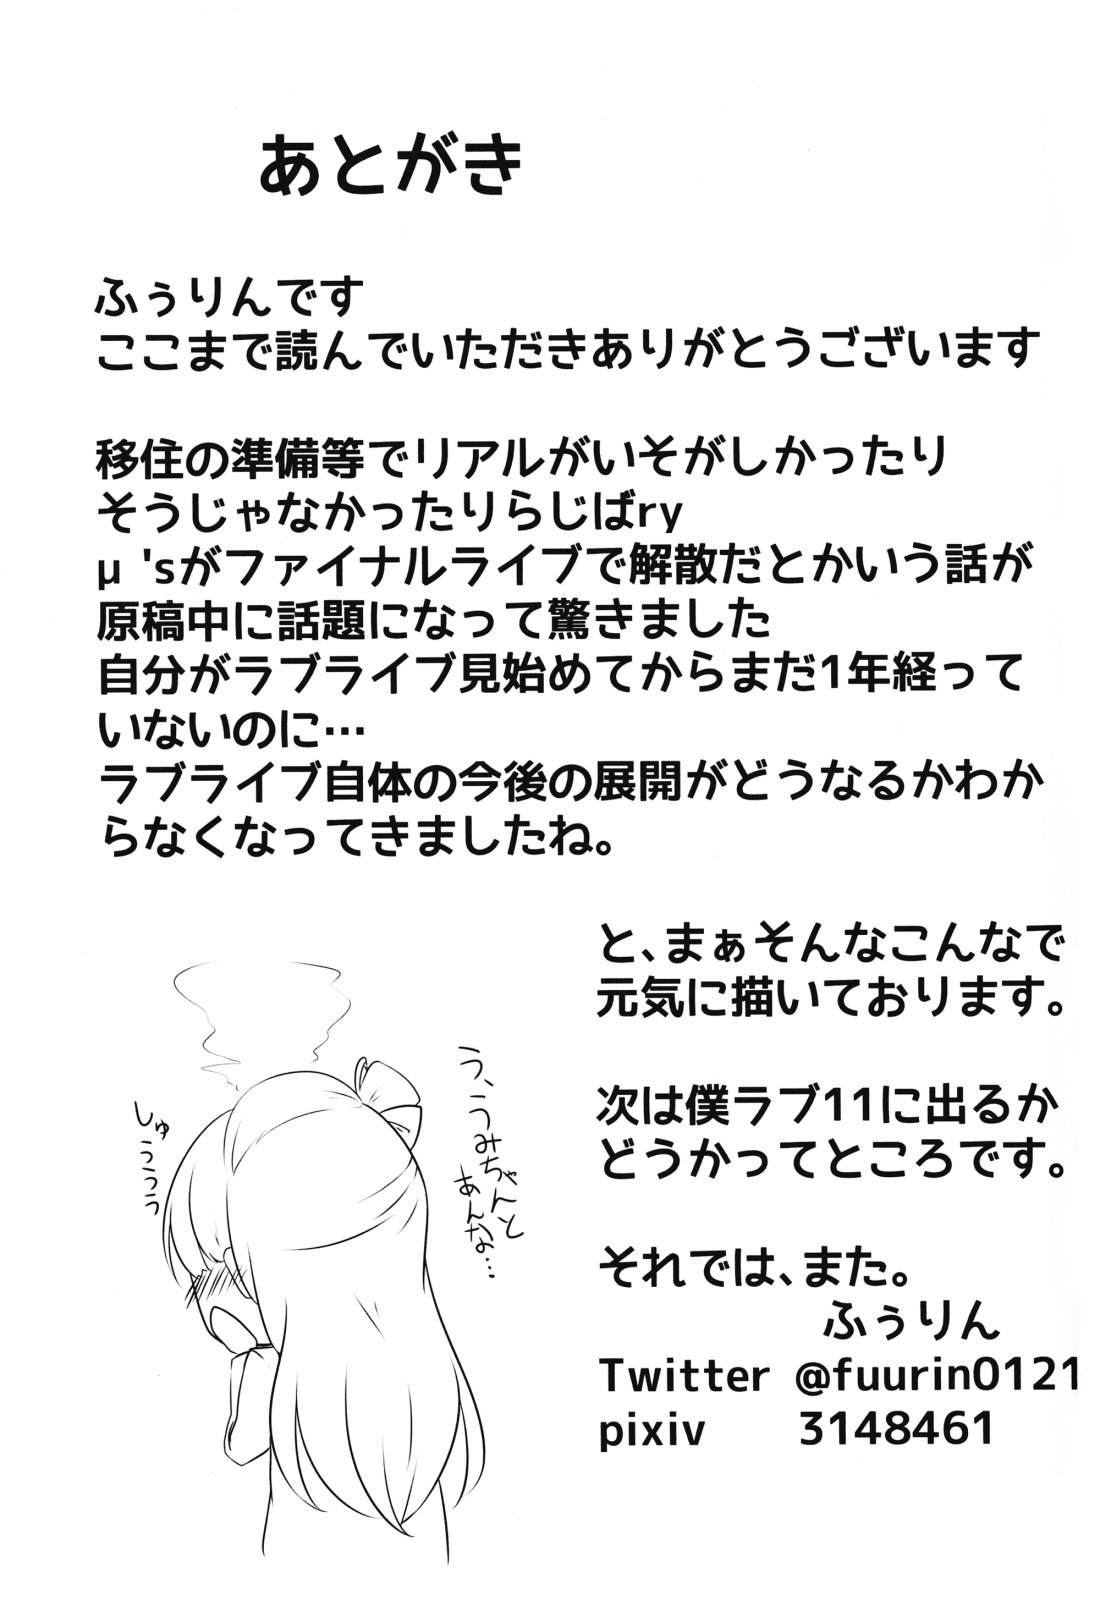 あとがき
ふぅりんです
ここまで読んでいただきありがとうございます
移住の準備等でリアルがいそがしかったり
そうじゃなかったりらじばry
μ'sがファイナルライブで解散だとかいう話が
原稿中に話題になって驚きました
自分がラブライブ見始めてからまだ1年経って
いないのに…
ラブライブ自体の今後の展開がどうなるかわか
らなくなってきましたね。
と、まぁそんなこんなで
元気に描いております。
次は僕ラブ11に出るか
どうかってところです。
それでは、また。
ふぅりん
Twitter @fuurin0121
pixiv 3148461
う、うみちゃんと
あんな…
しゅううう